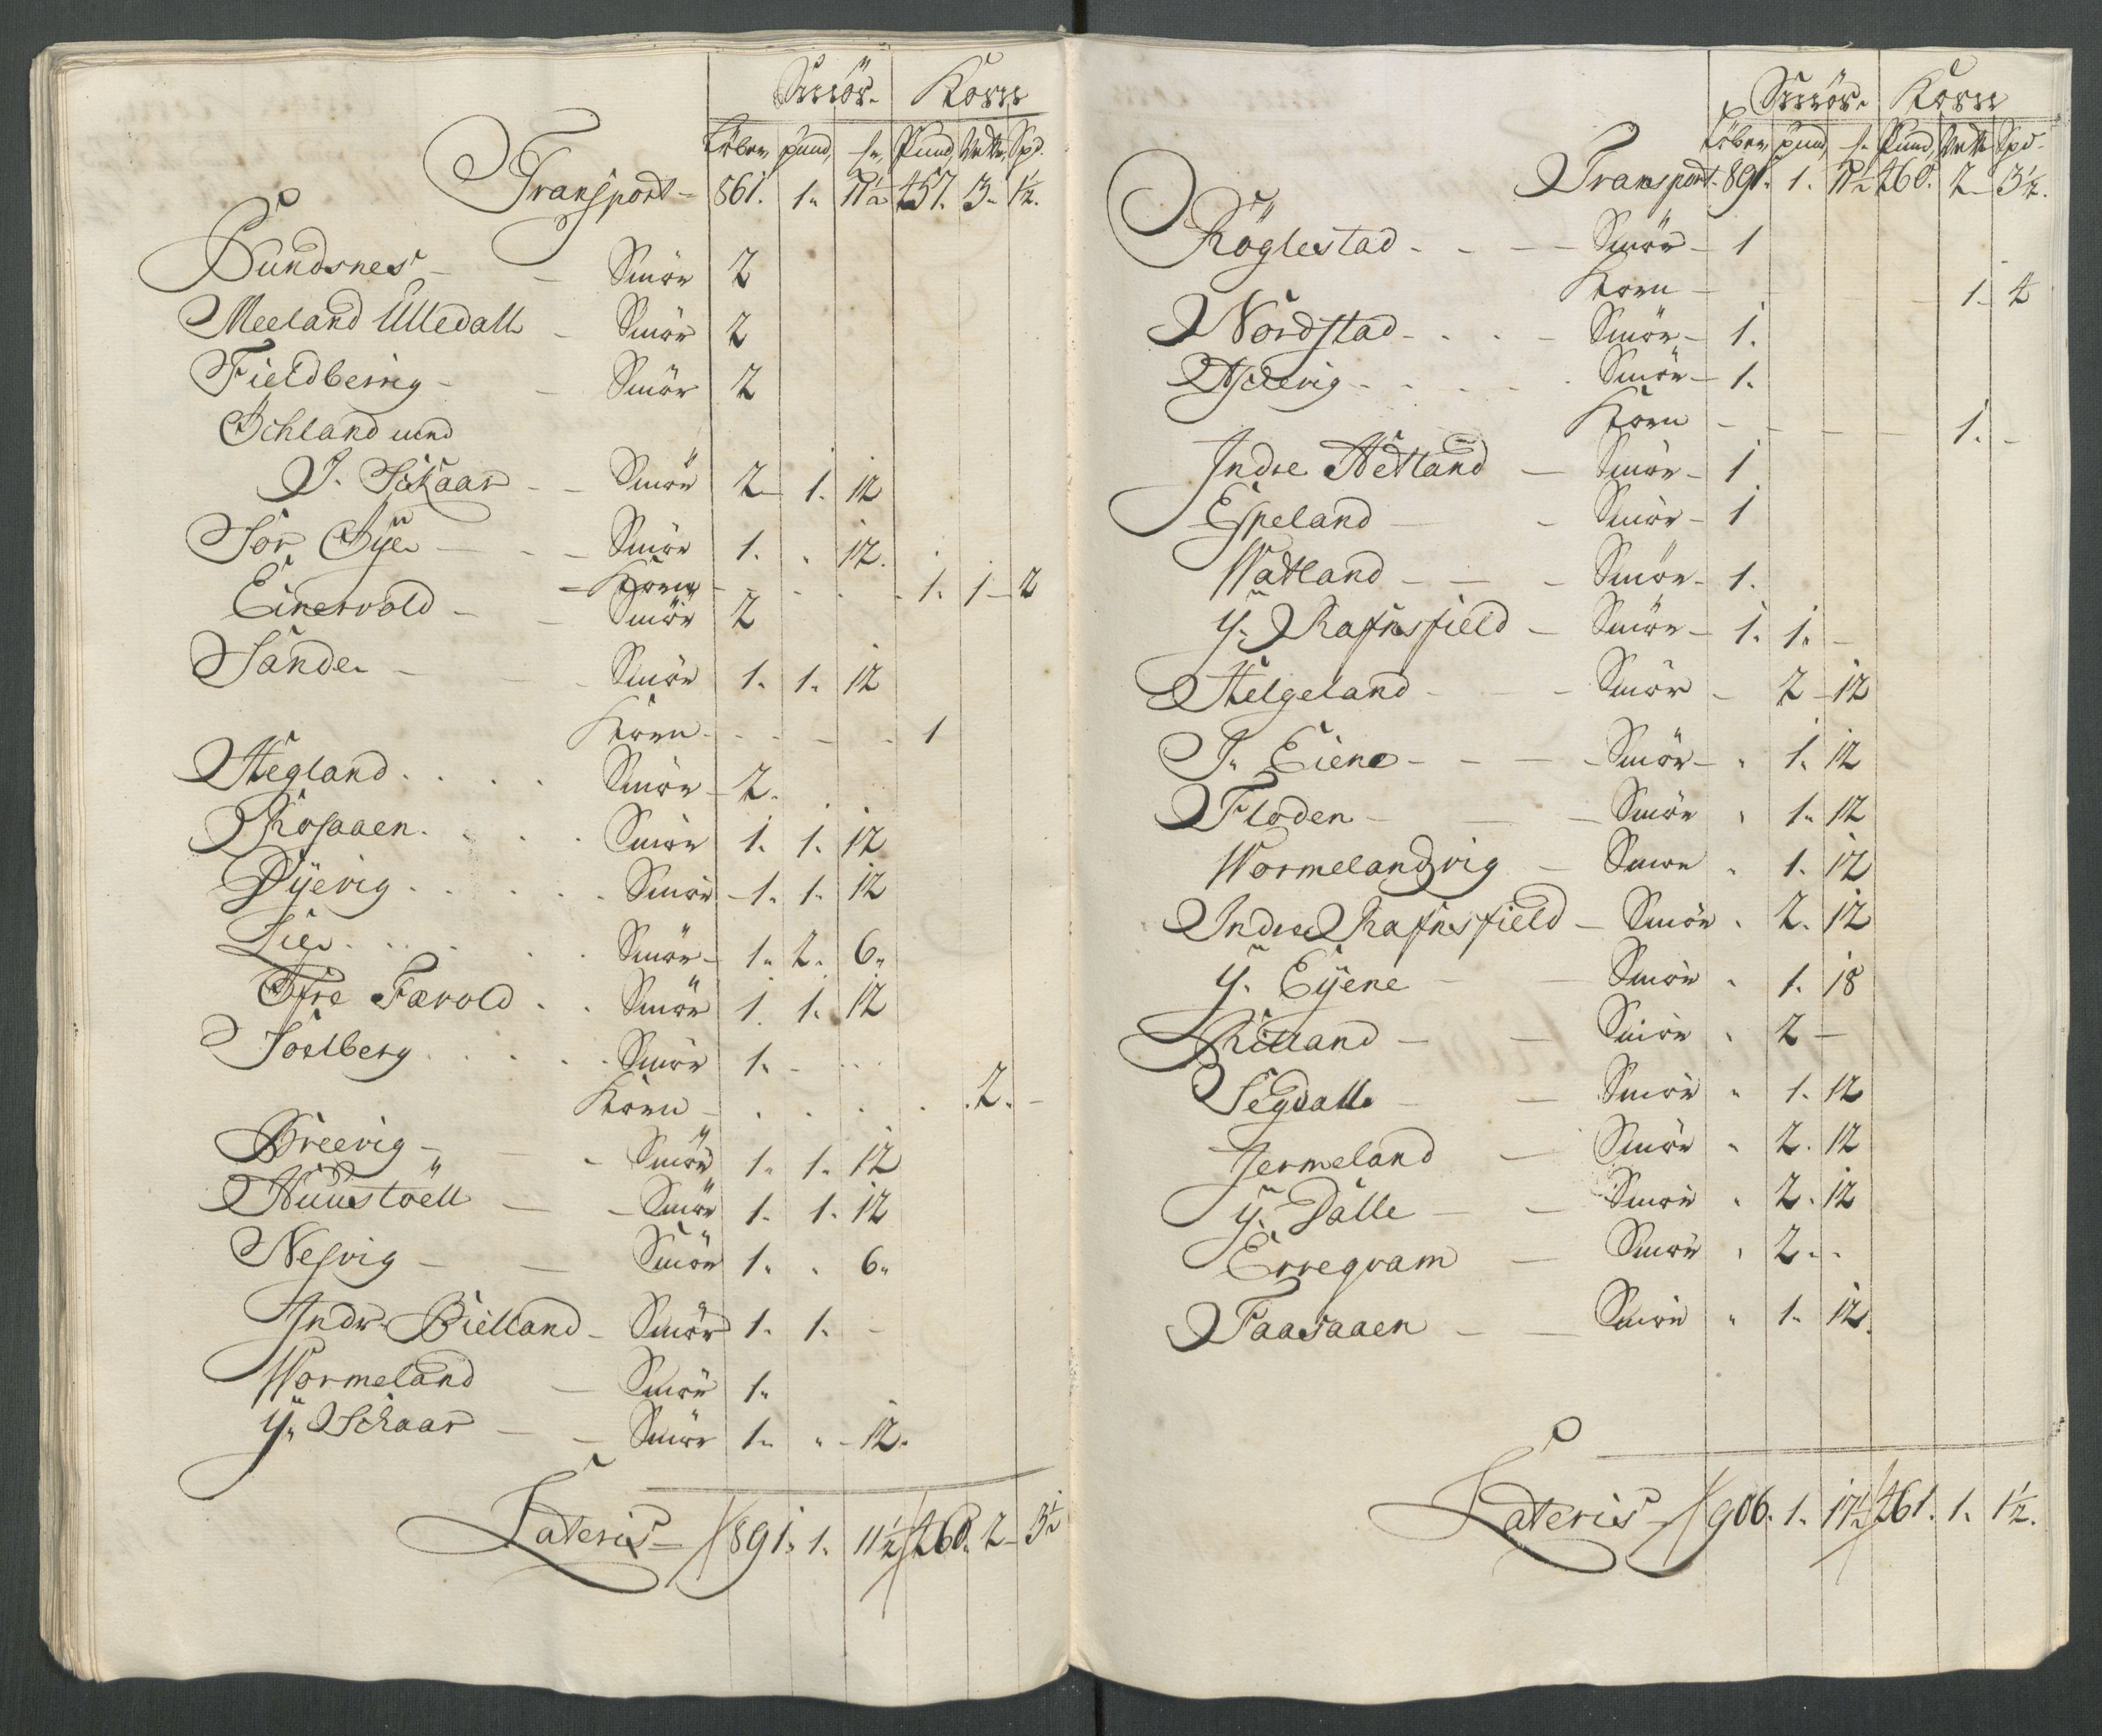 Smör. Korn
Löber pund, Pund, Vett, Spd.
Transport - 861. 1. 11½ 457. 3. 1½.
Bundsnes - - Smör 2
Meeland Ulledall - Smör 2
Fieldberig - - Smör 2
Ochland und
I. Skaar - - Smör 2 - 1. 12
Sör Öye - - - Smör 1. . 12.
- Korn - . . . . 1. 1 - 2
Einervold - - Smör 2
Sande - - - Smör 1. 1. 12
Korn - - - - - 1
Hegland . . . . Smör - 2.
Rosaaen . . . . Smör 1. 1. 12
Dÿevig . . . . . Smör - 1. 1. 12
Lie . . . . . . Smör - 1. 2. 6.
Öfre Tævold . . Smör 1. 1. 12
Soelberg . . . . . Smör 1. - . .
Korn - . . . . . 2. -
Breevig - - - Smör 1. 1. 12
Huustöell - - Smör 1. 1. 12
Nesvig - - Smör 1. . 6.
Indr. Bielland - Smör 1. 1. -
Wormeland - Smör 1.
Y. Schaar - - Smör 1. . - 12.
Lateris - 891. 1. 11½ 460. 2 - 3½
Smör. Korn
Löber pund, Pund, Vett Spd.
Transport. 891. 1. 11½ 460. 2 - 3½.
Röglestad - - - - Smör - 1
Korn - - 1. 4
Nordstad - . . - Smör - 1.
Smör - 1.
Korn - - - - 1. -
Indre Hetland - Smör - 1
Espeland - - Smör - 1
Watland - - - Smör - 1.
Y. Rafnsfield - Smör - 1. 1. -
Helgeland - - - Smör - 2 - 12
I. Eiene - - - - Smör - . 1. 12
Floden - - - Smör . 1. 12
Wormelandzvig - Smör . 1. 12
Indre Rafnsfield - Smör . 2. 12
Y. Eÿene - - Smör . 1. 18
Rilland - - Smör . 2 -
Segdall - - Smör . 1. 12
Jermeland - Smör . 2. 12
Y. Dalle - - Smör . 2. 12
Erreqvam - Smör . 2. .
Faasaaen - - Smör . 1. 12.
Lateris - 906. 1. 17½ 461. 1. 1½.